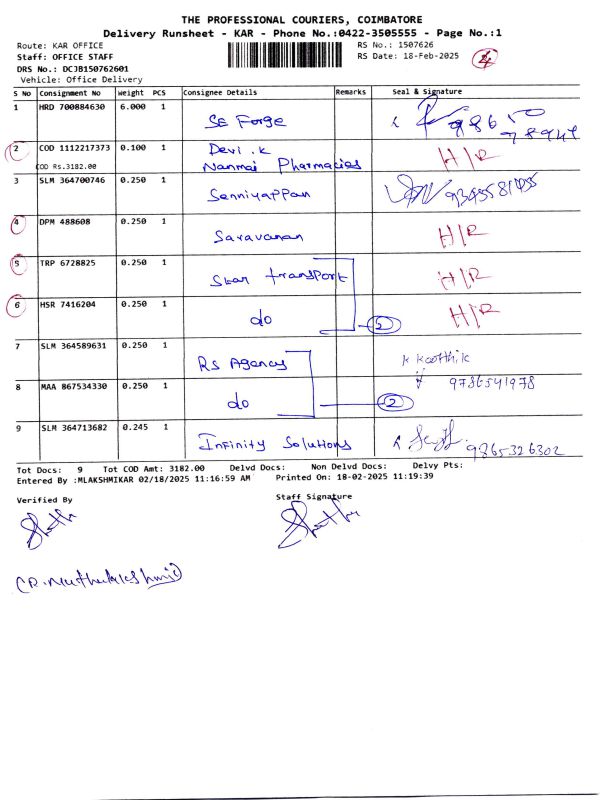 THE PROFESSIONAL COURIERS, COIMBATORE
Delivery Runsheet - KAR - Phone No.:0422-3505555 - Page No.:1
Route: KAR OFFICE RS No.: 1507626
Staff: OFFICE STAFF RS Date: 18-Feb-2025 4
DRS No.: DCJB150762601
Vehicle: Office Delivery
S No Consignment No Weight PCS Consignee Details Remarks Seal & Signature
1 HRD 700884630 6.000 1 SE Forge 98650
78944
2 COD 1112217373 0.100 1 Devi.K H/R
COD Rs.3182.00 Nanmai Pharmacies
3 SLM 364700746 0.250 1 Senniyappan 9345581455
4 DPM 488608 0.250 1 Saravanan H/R
5 TRP 6728825 0.250 1 Star transport H/R
6 HSR 7416204 0.250 1 do 5 H/R
7 SLM 364589631 0.250 1 RS Agency K Karthik
8 MAA 867534330 0.250 1 do 2 9786541978
9 SLM 364713682 0.245 1 Infinity Solutions 9865326302
Tot Docs: 9 Tot COD Amt: 3182.00 Delvd Docs: Non Delvd Docs: Delvy Pts:
Entered By :MLAKSHMIKAR 02/18/2025 11:16:59 AM Printed On: 18-02-2025 11:19:39
Verified By Staff Signature
(R. Muthulakshmi)